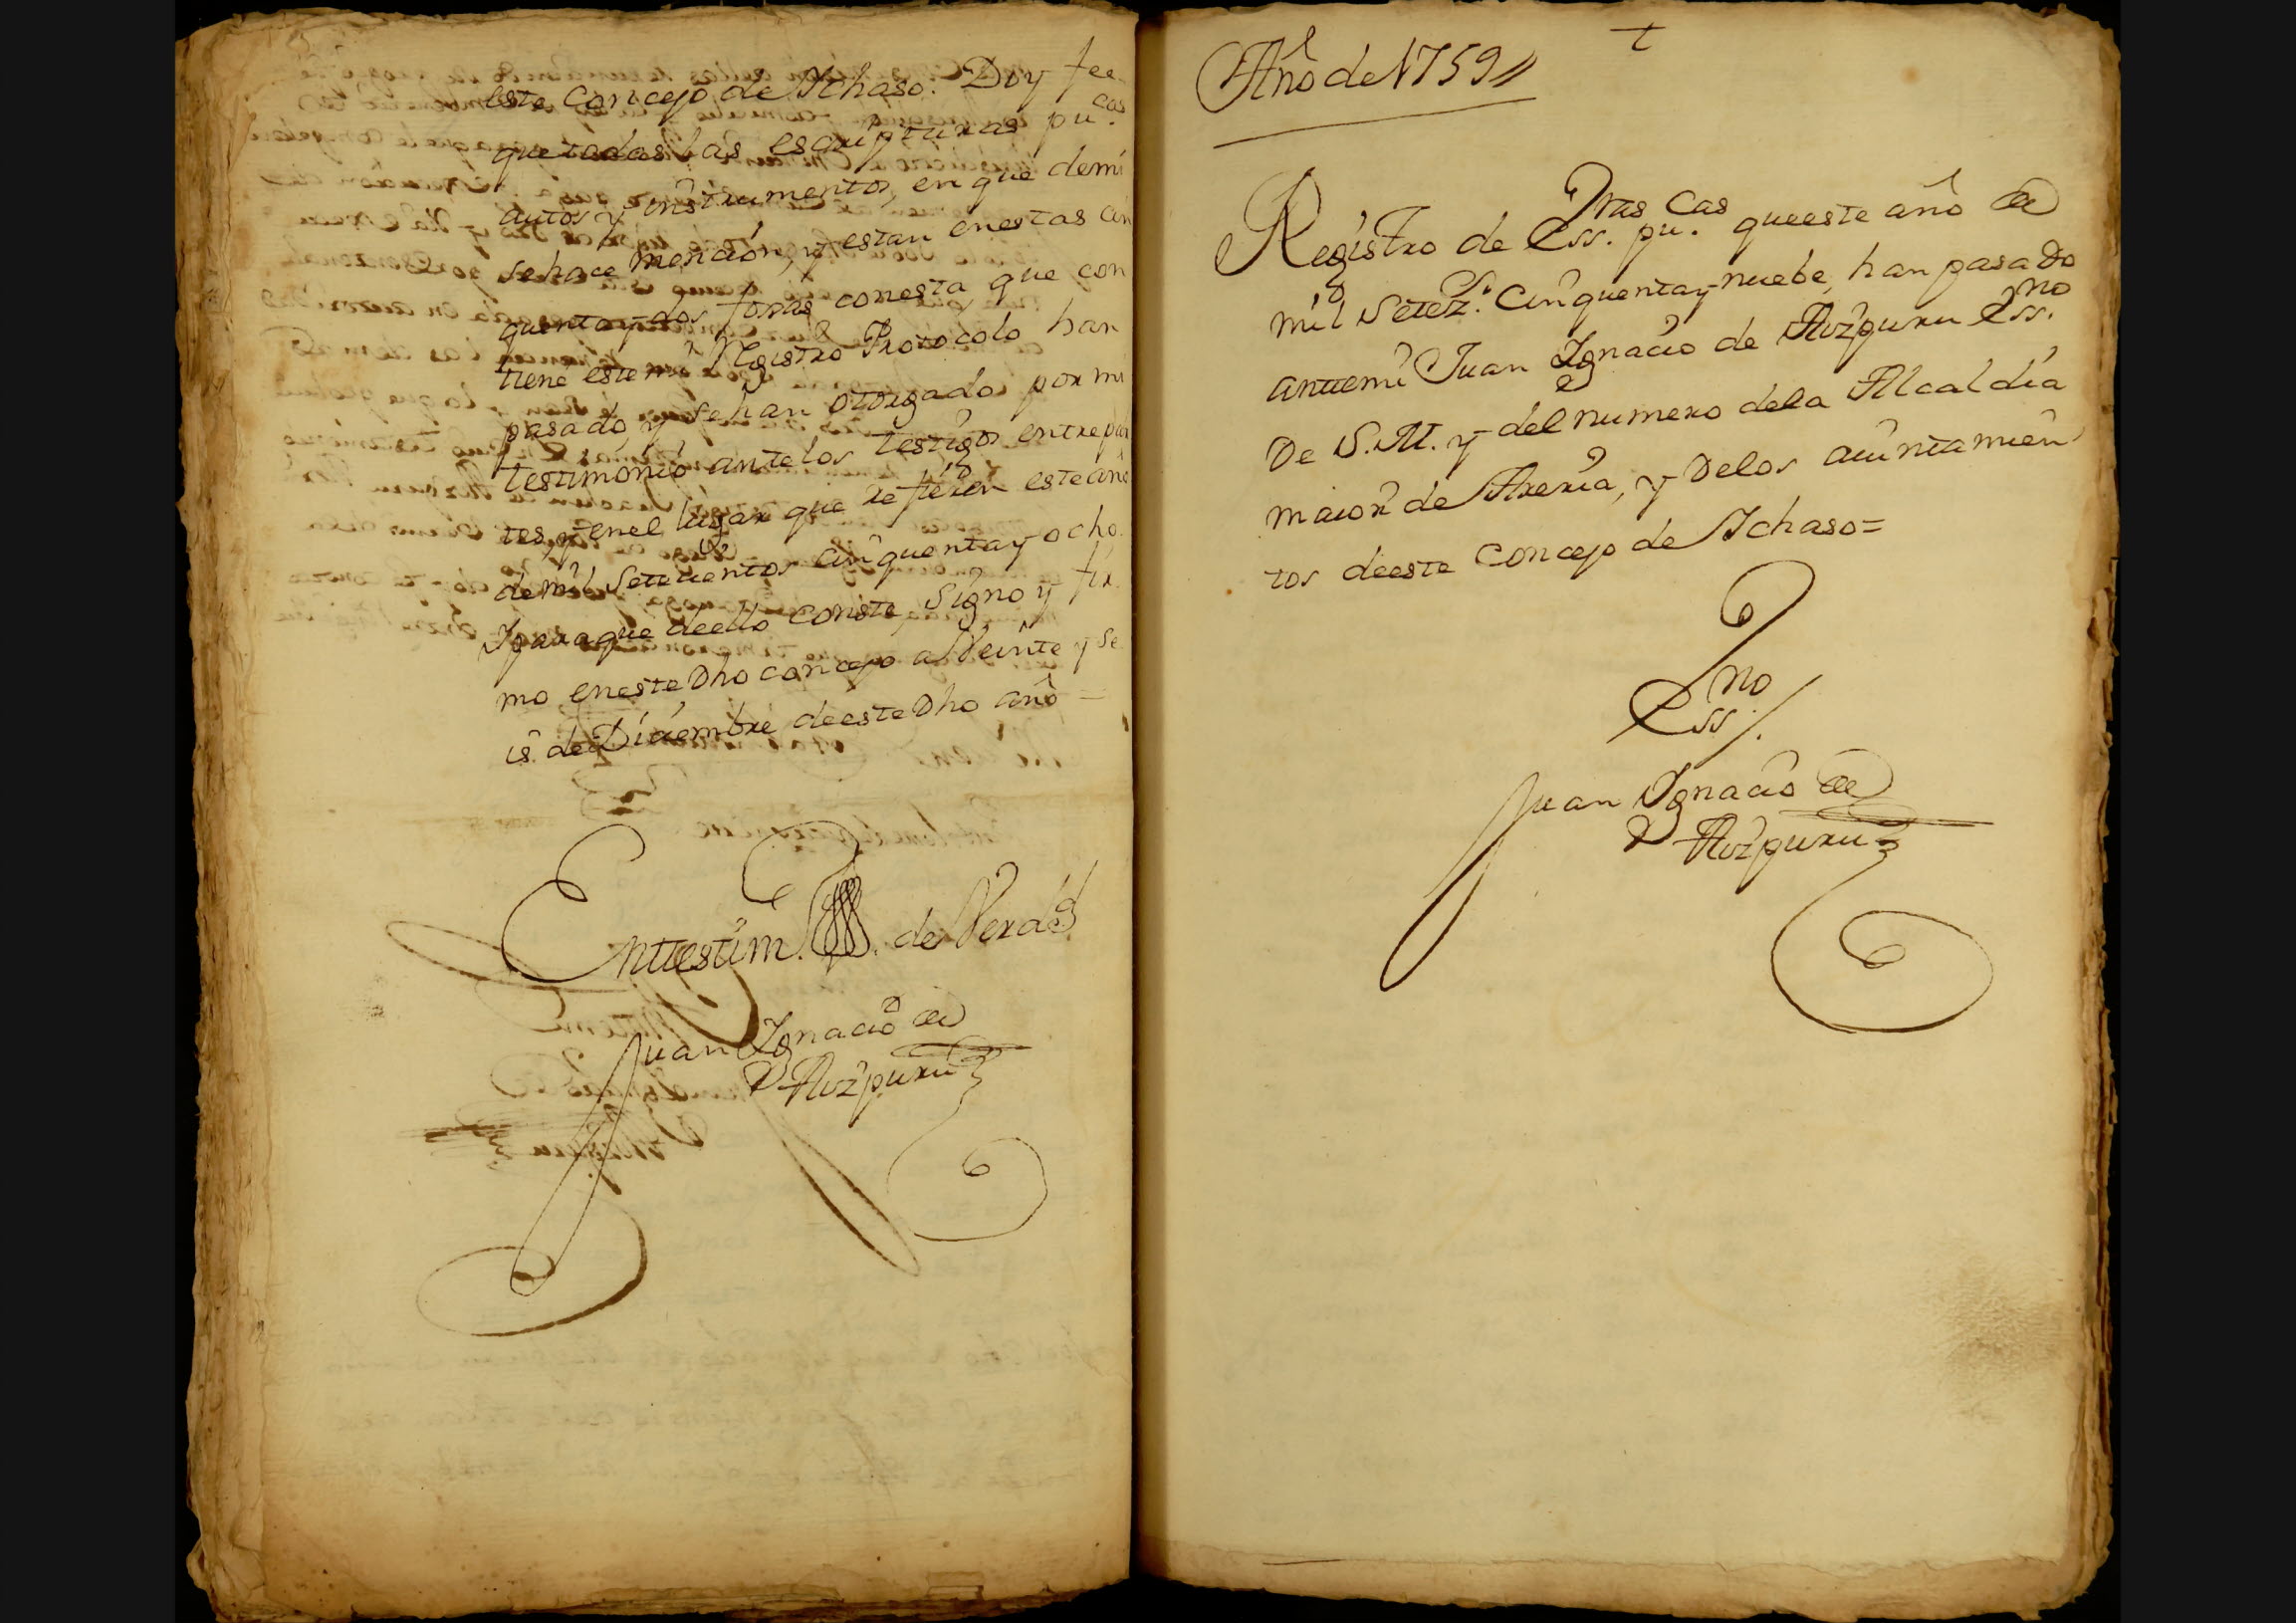 este concejo de Ichaso. Doy fee
que todas las escripturas pu.cas
autos y instrumentos, en que demi
se hace mención, y estan enestas cin
quenta y dos foxas conesta que con
tiene este mi Registro Protocolo han
pasado, y se han otorgado por mi
testimonio ante los testigos, entre par
tes, y en el lugar que refieren este año
de mil setecientos cinquenta y ocho.
I para que deello conste, Signo y fir
mo eneste Dho concejo a Veinte y se
is de Diciembre deeste Dho año =
Enttestim. de Verdad
Juan Ignacio de
Aizpuru
+
Año de 1759//
Registro de Ess.ras pu.cas queeste año de
mil Setez.s Cinquenta y nuebe, han pasado
anttemi Juan Ignacio de Aizpuru Ess.no
De S.M. y del numero dela Alcaldia
maior de Areria, y Delos aiuntamien
tos deeste concejo de Ichaso =
Ess.no
Juan Ignacio de
Aizpuru